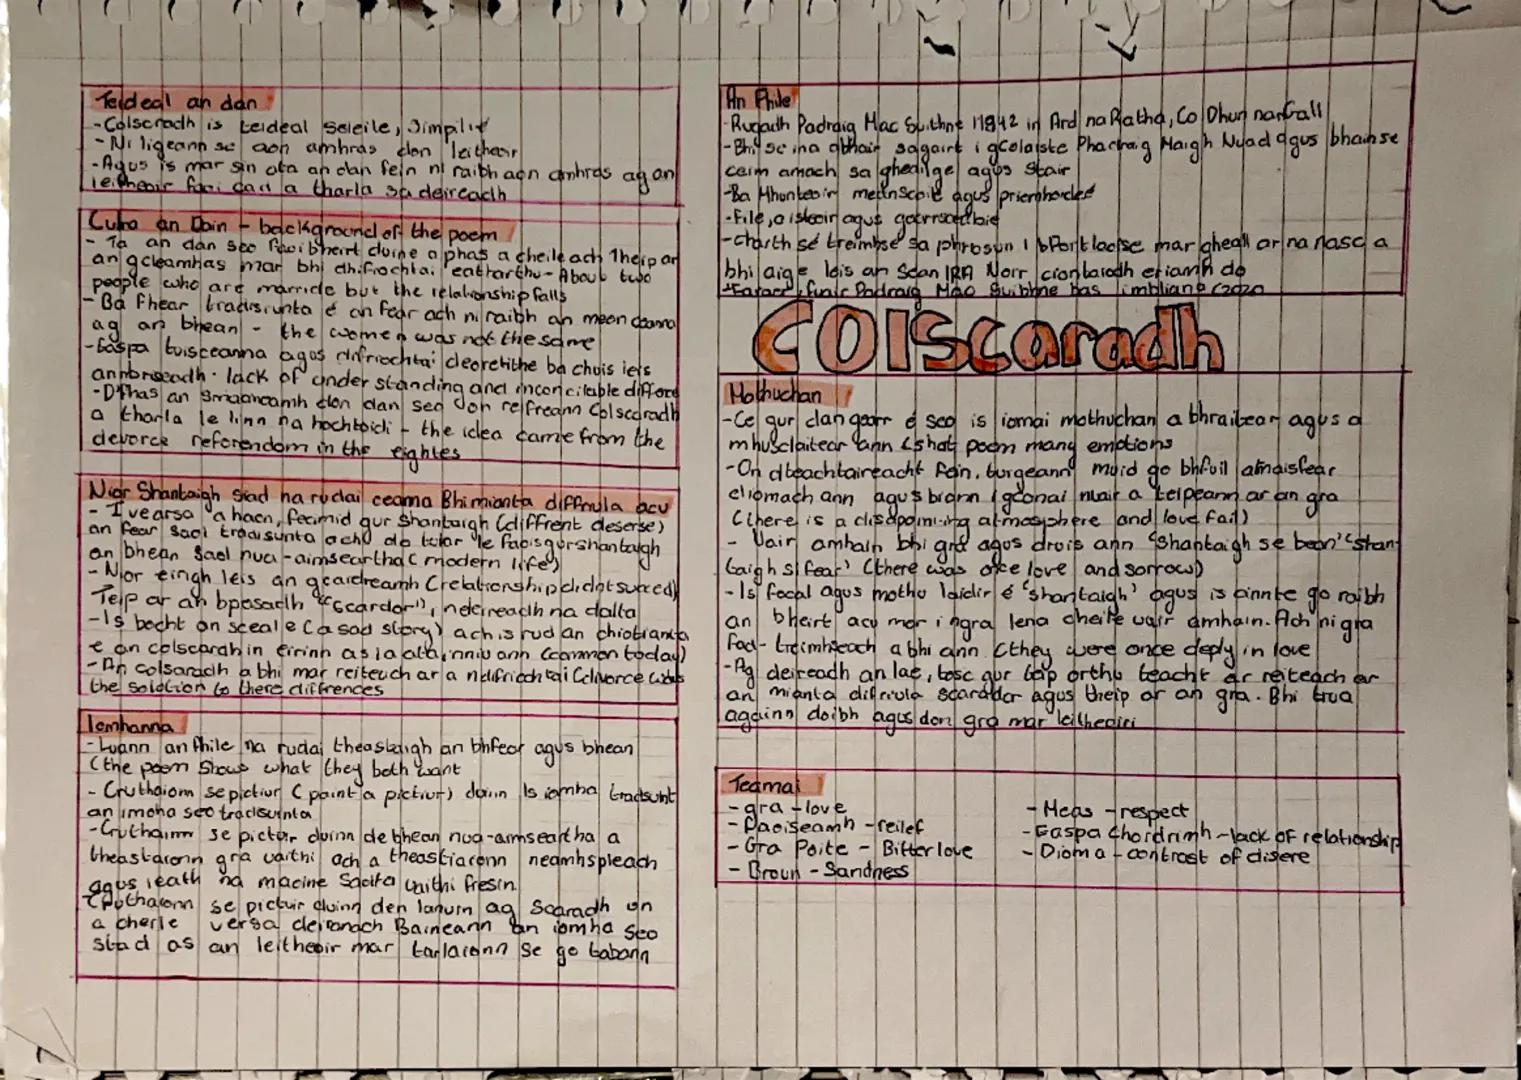 Teideal an dan
- Colscradh is teideal seleile, simplit
- Ni ligeann se aon amhras don leitheoir
- Agus is mar sin ata an dan fein ni raibh aon amhras ag an
leitheoir faoi card a tharla sa deireadh
Culra an Dain - background of the poem
- Ta an dan seo faoi bheirt duine a phas a cheile ach Theip ar
an gcleamhas mar bhi dhifiochtai eatharthu - About two
people who are marride but the relationship falls
- Ba fhear tradisiunta é an fear ach ni raibh an meon ceanna
ag an bhean - the women was not the same
- Easpa tuisceanna agus difriochtai deoreitithe ba chuis leis
an mbriseadh. lack of under standing and inconcilable differe
- D'fhas an smaoineamh don dan seo don refreann Colscaradh
a tharla le linn na hochtoidi - the idea came from the
devorce referendom in the eightes
Nior Shantaigh siad na rudai ceanna Bhi mianta diffriula acu
- I vearsa a haon, fecimid gur shantaigh (diffrent deserse)
an fear saol traaisunta achd do tular le faoisgurshantaigh
an bhean saol nua-aimseartha (modern life)
- Nior eirigh leis an gcaidreamh (relationship didnt succed)
Teip ar an bposadh "scardar", i ndeireadh na dalta
- Is bocht an sceale (a sad story) ach is rud an choitianta
e an colscarah in Eirinn as la ata inniu ann (common today)
- An colsaradh a bhi mar reiteach ar a ndifriochtai (divorce was
the solution to there diffrences
Iomhanna
- Luann an fhile na rudai theastaigh an bhfear agus bhean
(the poem shows what they both want
- Cruthaiom se pictiur (paint a pictiur) duinn Is iomha tradsunt
an imoha seo tradsiunta
- Cruthaimm se pictiur duinn de bhean nua-aimseartha a
theastaionn gra uaithi ach a theastiaronn neamhspleach
agus leath na macine saoita uaithi freisin
- Cruthaionn se pictuir duinn den lanuin ag Scaradh on
a cheile versa deironach Baineann an iomha seo
stad as an leitheoir mar tarlaionn se go tobann
An Phile
- Rugadh Padraig Mac Suibhne i 1942 in Ard na Ratha, Co Dhun nanGall
- Bhi se ina abhair sagairt i gcolaiste Phadraig Maigh Nuad agus bhain se
ceim amach sa ghedilge agus stair
- Ba Mhunteoir meanscoile agus priomhoide
- File, aisteoir agus gearrscealai
- Chaith sé treimhse sa phrosun i bPortlaoise mar gheall ar na nasc a
bhi aige leis an Sean IRA Nior ciontaiodh e riamh do
- Faraor, fuair Padraig Mac Suibhne bas i mbliana (2020
COlScaradh
Mothuchan
- Ce gur dan gearr é seo is iomai mothuchan a bhraitear agus a
mhusclaitear ann (shat poem many emotions
- On dteachtaireacht fein, tuigeann muid go bhfuil atmaisfear
eliomach ann agus bionn i gconai nuair a teipeann ar an gra
(there is a disapoining atmosphere and love fail)
- Uair amhain bhi gra agus drois ann 'shantaigh se bean' 'shan-
taigh si fear' (there was once love and sorrow)
- Is focal agus mothu laidir é 'shantaigh' agus is cinnte go raibh
an bheirt acu mar i ngra lena cheile uair amhain. Ach ni gra
fad-treimhseach a bhi ann (they were once deply in love
- Ag deireadh an lae, tosc gur teip orthu teacht ar reiteach ar
an mianta difriula scaradar agus theip ar an gra. Bhi trua
againn doibh agus don gra mar leitheoiri
Teamai
- gra - love
- Faoiseamh - reilef
- Gra Poite - Bitter love
- Broun - Sandness
- Meas - respect
- Easpa Chardrimh - lack of relationship
- Dioma - contrast of disere